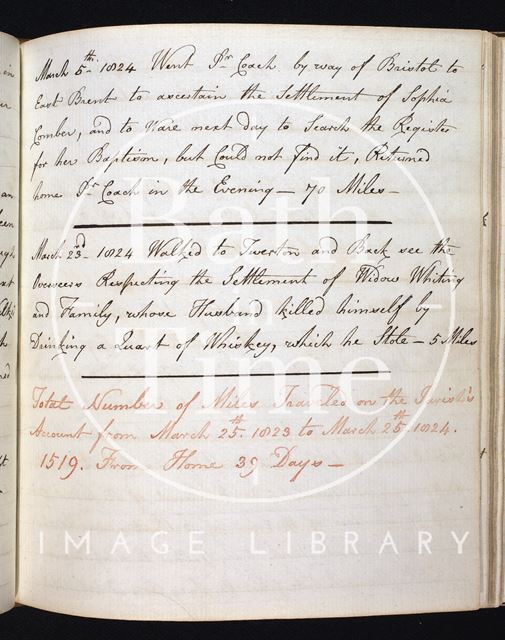 March 5th 1824 Went Pr Coach by way of Bristol to
East Brent to ascertain the Settlement of Sophia
Comber, and to Ware next day to Search the Register
for her Baptism, but Could not find it, Returned
home Pr Coach in the Evening — 70 Miles —
March 23rd 1824 Walked to Twerton and Back see the
Overseers Respecting the Settlement of Widow Whiting
and Family, whose Husband killed himself by
Drinking a Quart of Whiskey, which he Stole — 5 Miles
Total Number of Miles Traveled on the Parish's
Account from March 25th 1823 to March 25th 1824.
1519. From Home 39 Days —
Bath
in
Time
IMAGE LIBRARY